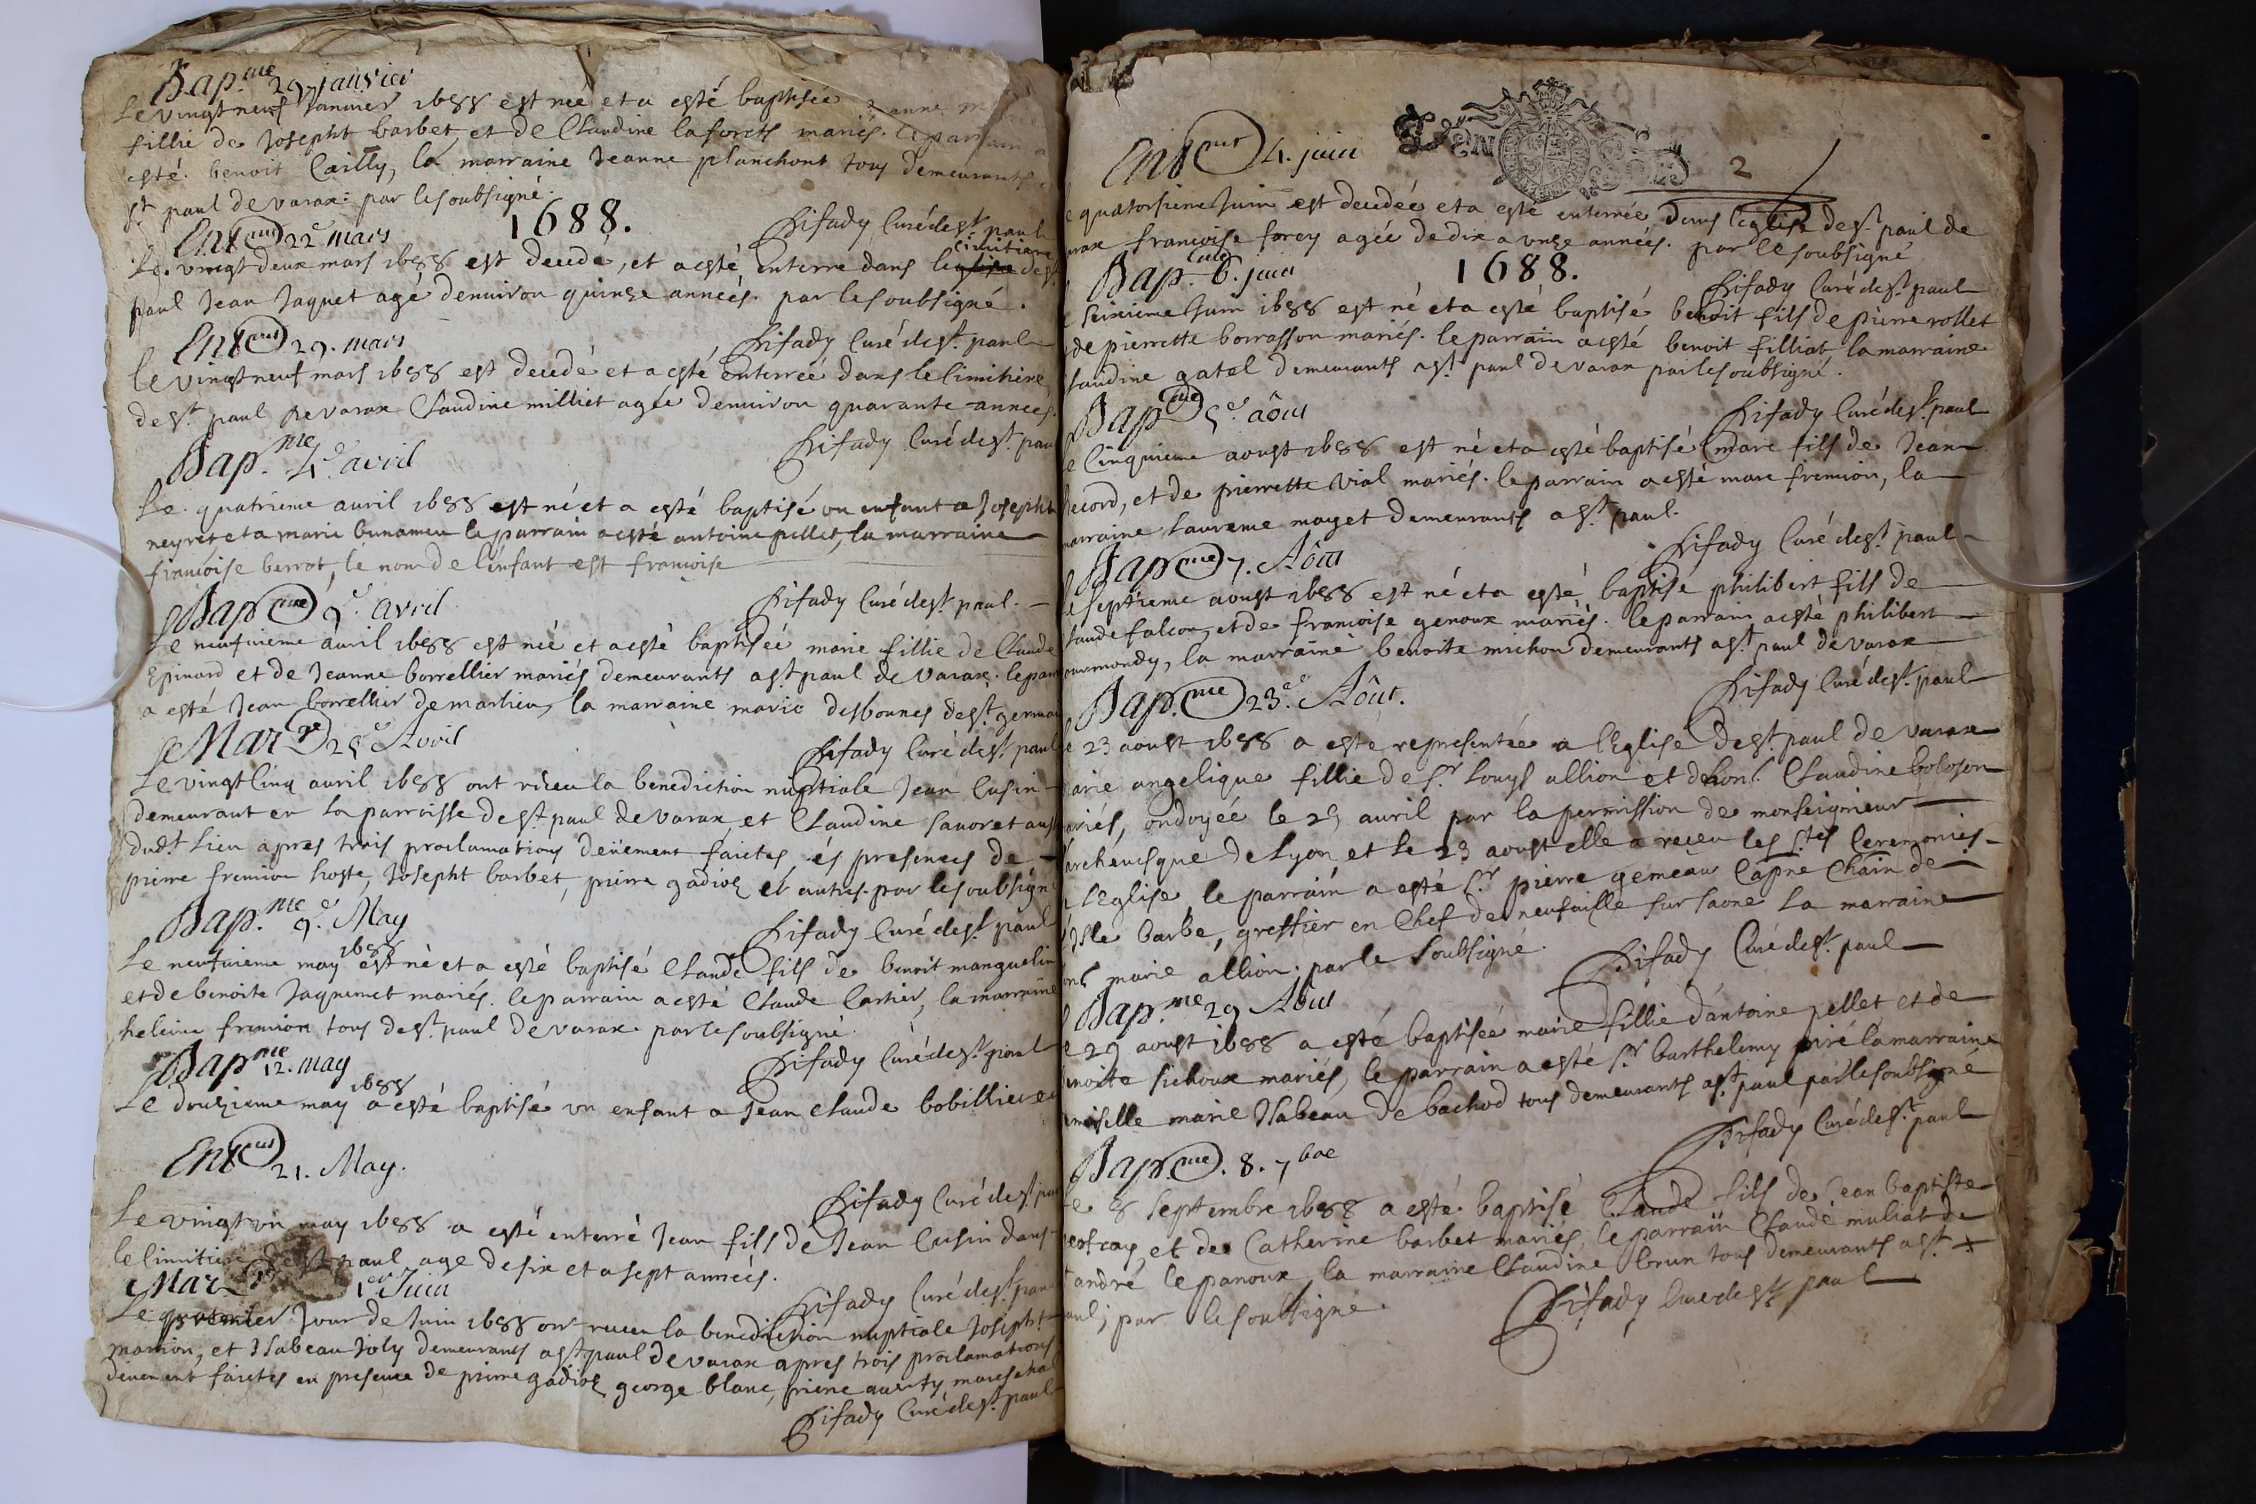 Bap.me 29 janvier
Le vingt neuf Janvier 1688 est neé et a esté baptiseé Jeanne
fillie de Josepht barbet et de Claudine laforets mariés. le parrain a
esté. benoit Cailly, la marraine Jeanne planchont tous demeurants
St paul de varax: par le soubsigné.
1688.
Difady Curé de St paul
Ent.ment 22e mars
Le. vingt deux mars 1688 est decedé, et a esté enterre dans le cimitiere de St
paul Jean Jaquet agé d'environ quinze anneés. par le soubsigné.
Difady Curé de St. paul
Ent.ment 29. mars
Le vingt neuf mars 1688 est decedé et a esté enterreé dans le cimitiere
de St paul de varax Claudine milliet ageé denviron quarante anneés.
Difady Curé de St. paul
Bap.me 4e. avril
Le. quatrieme avril 1688 est né et a esté baptisé un enfant a Josepht
neyret et a marie bunameu le parrain a esté antoine pellet, la marraine
francoise berrot, le nom de l'enfant est francoise
Difady Curé de St. paul.
Bap.me 9e. avril
Le neufvieme avril 1688 est neé et a esté baptiseé marie fillie de Claude
Epinard et de Jeanne borrellier mariés demeurants a St paul de varax. le par
a esté Jean borrellier de marlieu, la marraine marie desbonnes de St. germai
Difady Curé de St. paul
Mar.ge 25e Avril
Le vingt cinq avril 1688 ont receu la benediction nuptiale Jean Cusin
demeurant en la parroisse de St. paul de varax, et Claudine savoret aussi
dud.t lieu apres trois proclamations deüement faictes, és presences de
pierre fremion hoste, Josepht barbet, pierre gadiol et autres. par le soubsigné
Difady Curé de St. paul
Bap.me 9e. May
Le neufvieme may 1688 est né et a esté baptisé Claude fils de benoit manguelin
et de benoite Jaquemet mariés. le parrain a esté Claude Cartier, la marraine
heleine fremion tous de St. paul de varax. par le soubsigné.
Difady Curé de St. paul
Bap.me 12. may
Le douzieme may 1688 a esté baptisé un enfant a Jean Claude bobilliere
Ent.ment 21. May.
Difady Curé de St. paul
Le vingt un may 1688 a esté enterré Jean fils de Jean Cusin dans
le cimitiere de St paul age de six et a sept anneés.
Difady Curé de St. paul
Mar.ge 1er Juin
Le premier Jour de Juin 1688 ont receu la benediction nuptiale Josepht
marion, et Isabeau Joly demeurants a St. paul de varax apres trois proclamations
deüement faictes en presence de pierre gadiol george blanc, pierre mareschal
Difady Curé de St. paul
Ent.ment 4. juin
2
quatorsieme Juin est decedeé et a esté enterreé dans l'Eglise de St. paul de
varax francoise forey ageé de dix a unse anneés. par le soubsigné
1688.
Difady Curé de St. paul
Bap.me 6. juin
Seixieme Juin 1688 est né et a esté baptisé benoit fils de pierre rollet
de pierrette borrasson mariés. le parrain a esté benoit filliat, la marraine
Claudine gatel demeurants a St. paul de varax par le soubsigné.
Difady Curé de St. paul
Bap.me 5e. aôut
Cinquieme aoust 1688 est né et a esté baptisé marc fils de Jean
record, et de pierrette vial mariés. le parrain a esté marc fremion, la
marraine Laurence mayet demeurants a St. paul.
Difady Curé de St. paul
Bap.me 7. Aôut
septieme aoust 1688 est né et a esté baptise philibert fils de
Claude falcon, et de francoise genoux mariés. le parrain a esté philibert
ourmondy, la marraine benoite michon demeurants a St. paul de varax
Difady Curé de St. paul
Bap.me 23.e Aôut.
23 aoust 1688 a esté representeé a l'Eglise de St. paul de varax
marie angelique fillie de Sr. Louys allion et de hon. Claudine boloson
mariés, ondoyeé le 25 avril par la permission de monseignieur
archevesque de Lyon et le 23 aoust elle a receu les Stes Ceremonies
l'Eglise, le parrain a esté Sr pierre gemeau Capne Chain de
Isle barbe, greffier en Chef de neufville sur saone La marraine
hon. marie allion. par le soubsigné.
Difady Curé de St. paul
Bap.me 29 Aôut
29 aoust 1688 a esté baptiseé marie fillie d'antoine pellet et de
benoite sichoux mariés, le parrain a esté Sr barthelemy piré la marraine
moiselle marie Isabeau de bachod tous demeurants a St. paul par le soubsigné
Difady Curé de St. paul
Bap.me. 8. 7bre
8 Septembre 1688 a esté baptisé Claude fils de Jean baptiste
et de Catherine barbet mariés, le parrain Claude muliat de
andré le panoux, la marraine Claudine brun tous demeurants a St
paul; par le soubsigné.
Difady Curé de St. paul